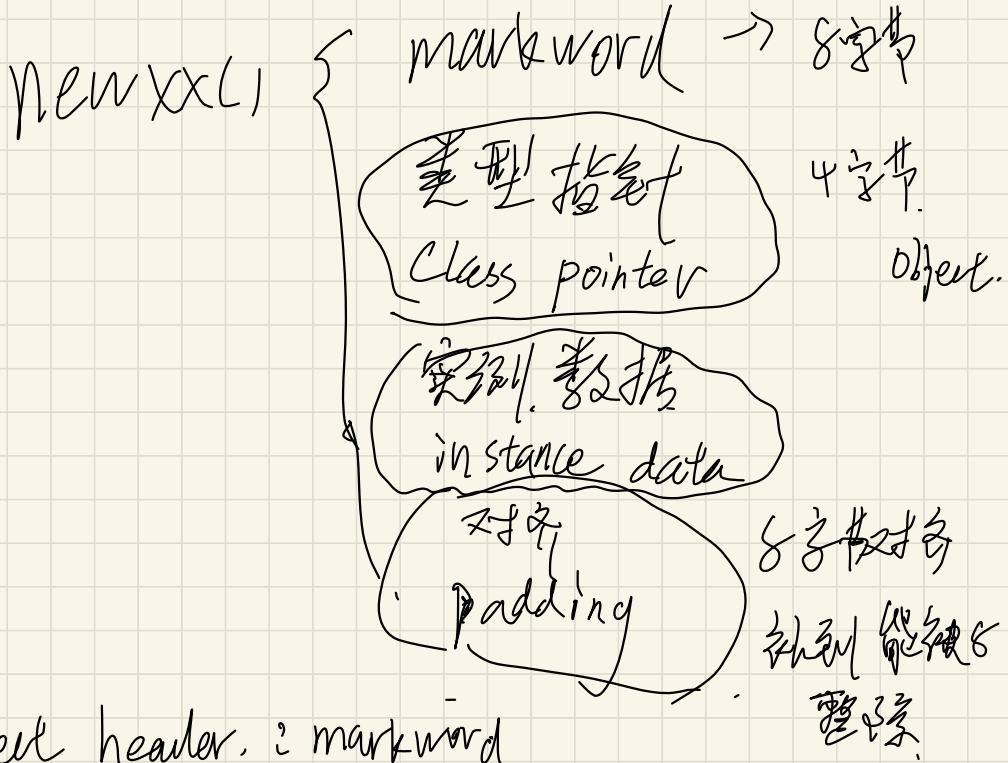 new xx()
markword → 8字节
类型指针
4字节.
Class pointer
Object.
实例.数据
instance data
对齐
8字节对齐
padding
补到能被8
整除.
ect header. : markword